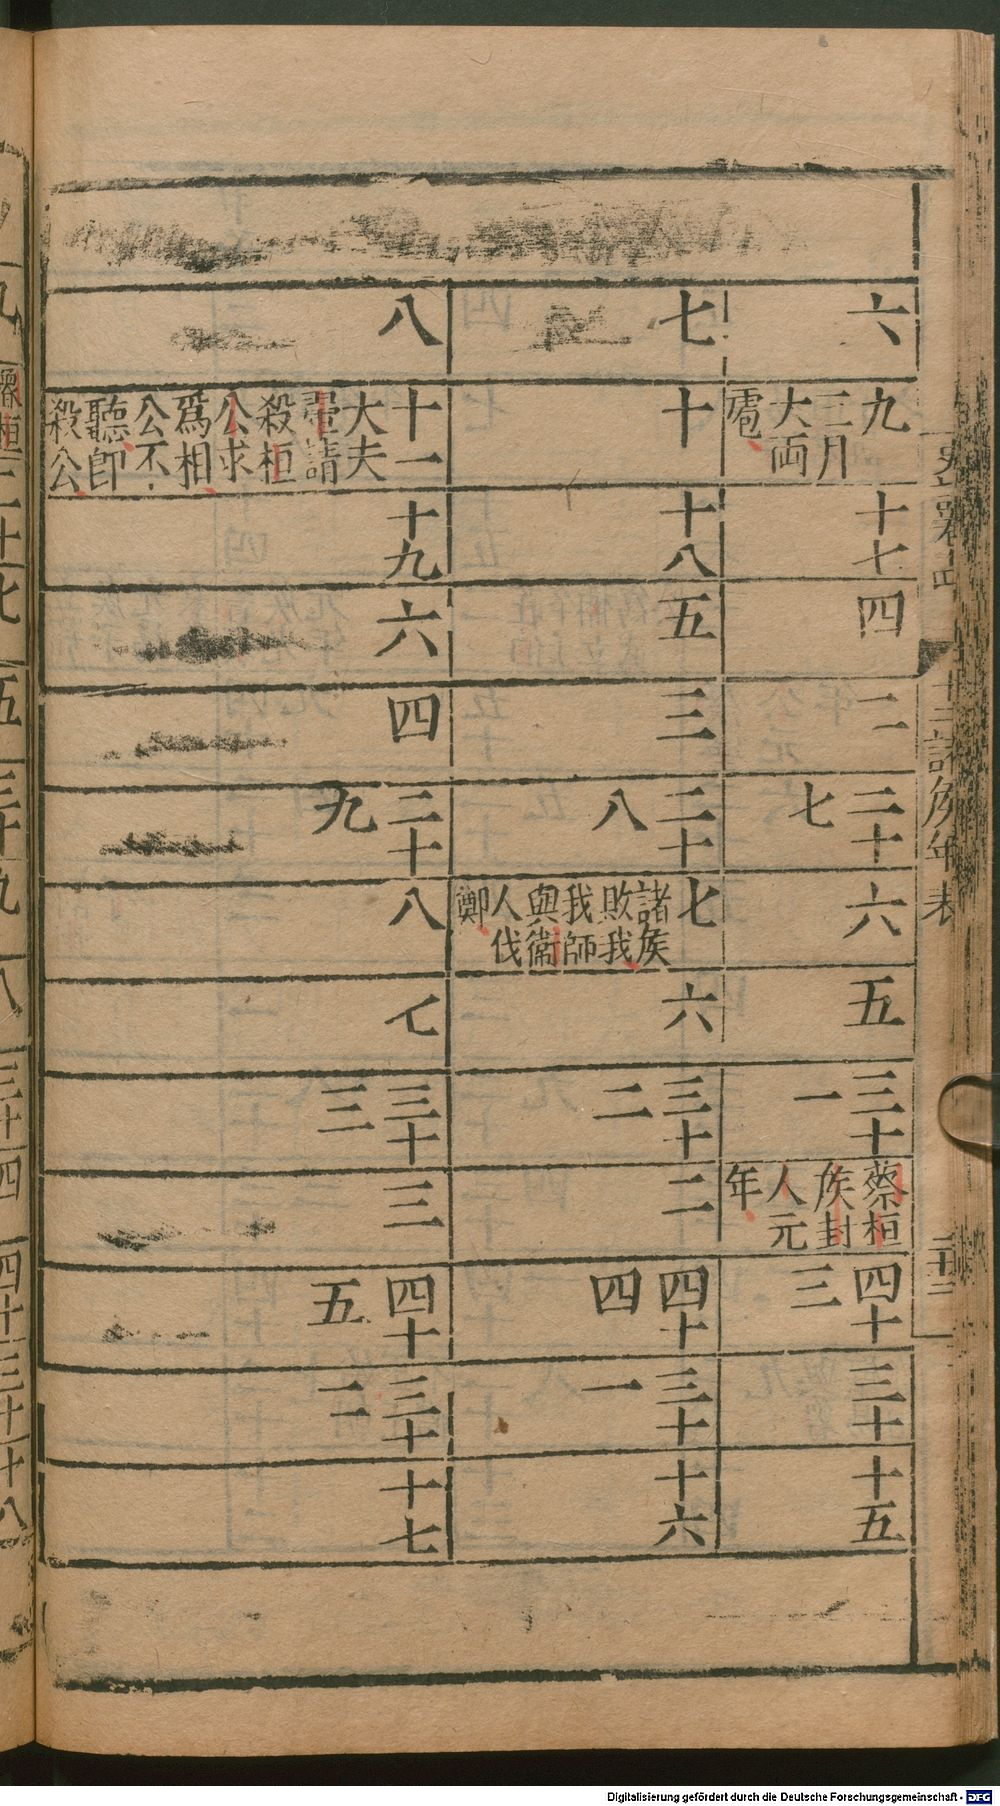 六
九 三月大雨雹
十七
四
二
二十七
六
五
三十一
蔡桓侯封人元年
四十三
三十
十五
七
十
十八
五
三
二十八
七 諸侯敗我我師與衞人伐鄭
六
三十二
二
四十四
三十一
十六
八
十一 大夫翬請殺桓公求爲相公不聽即殺公
十九
六
四
二十九
八
七
三十三
三
四十五
三十二
十七
十二諸侯年表
Digitalisierung gefördert durch die Deutsche Forschungsgemeinschaft - DFG